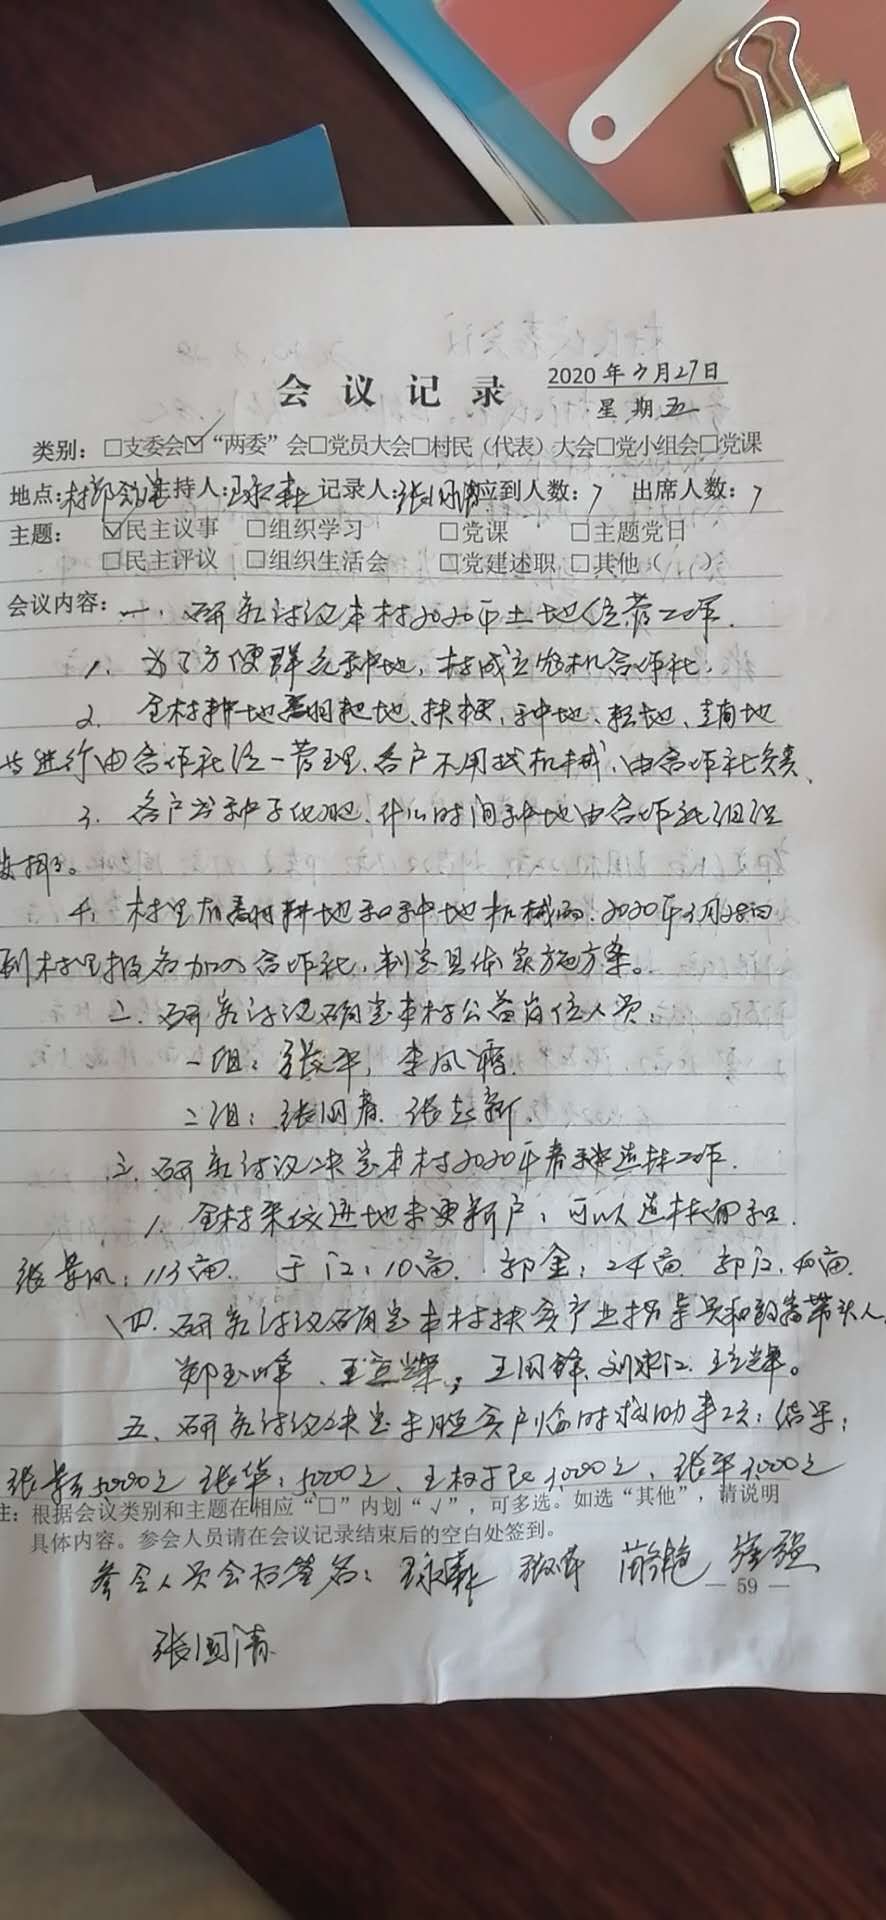 会议记录 2020年3月27日
星期五
类别：□支委会☑“两委”会□党员大会□村民（代表）大会□党小组会□党课
地点：村部 主持人： 记录人：张国清 应到人数：7 出席人数：7
主题： ☑民主议事 □组织学习 □党课 □主题党日
□民主评议 □组织生活会 □党建述职 □其他（ ）
会议内容：一、研究讨论本村2020年土地 工作.
1、为了方便群众种地，村成立农机合作社.
2、全村种地 耙地、扶梗、种地、 地、 地
等进行由合作社统一管理、各户不用找机械、由合作社负责、
3、各户 种子化肥、什么时间种地由合作社组织
安排。
4、村里有 耕地和种地机械的、2020年3月28日
到村里报名加入合作社，制定具体实施方案。
二、研究讨论确定本村公益岗位人员：
一组：张平，李凤
二组：张国春、张志新、
三、研究讨论决定本村2020年春 造林工作.
1、全村 地未更新户，可以造林的有
张景凤：113亩、 于江：10亩、 郭金：24亩、 郭江、40亩、
四、研究讨论确定本村扶贫产业指导员和致富带头人
郑玉峰、王立辉； 王国锋、刘 江、王立辉。
五、研究讨论决定未脱贫户临时救助事项：结果：
张 5000元 张华：5000元、王 民3000元、张平3000元
注：根据会议类别和主题在相应“□”内划“√”，可多选。如选“其他”，请说明
具体内容。参会人员请在会议记录结束后的空白处签到。
参会人员会后签名： 张强
— 59 —
张国清